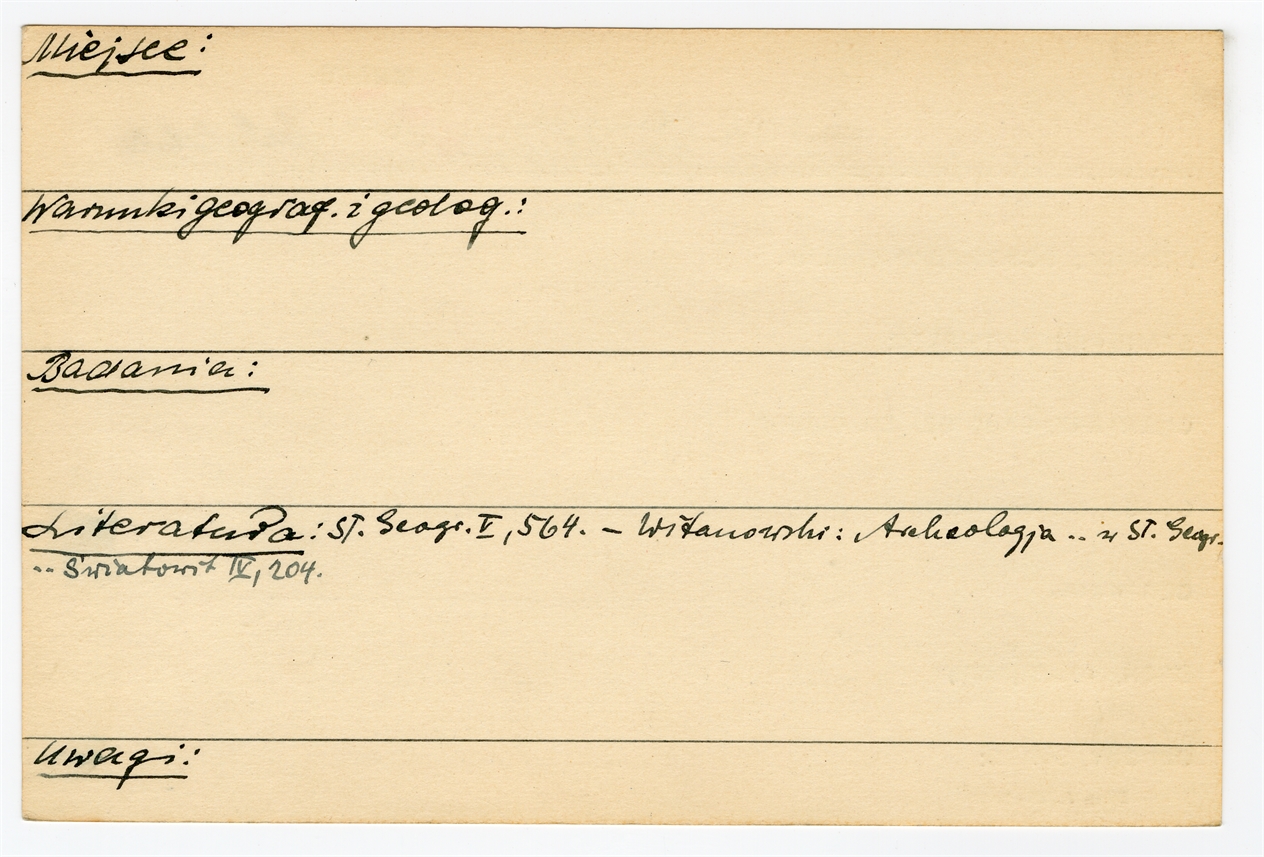 Miejsce:
Warunki geograf. i geolog.:
Badania:
Literatura: Sł. Geogr. I, 564. – Witanowski: Archeologja .. w Sł. Geogr.
.. Światowit IV, 204.
Uwagi: